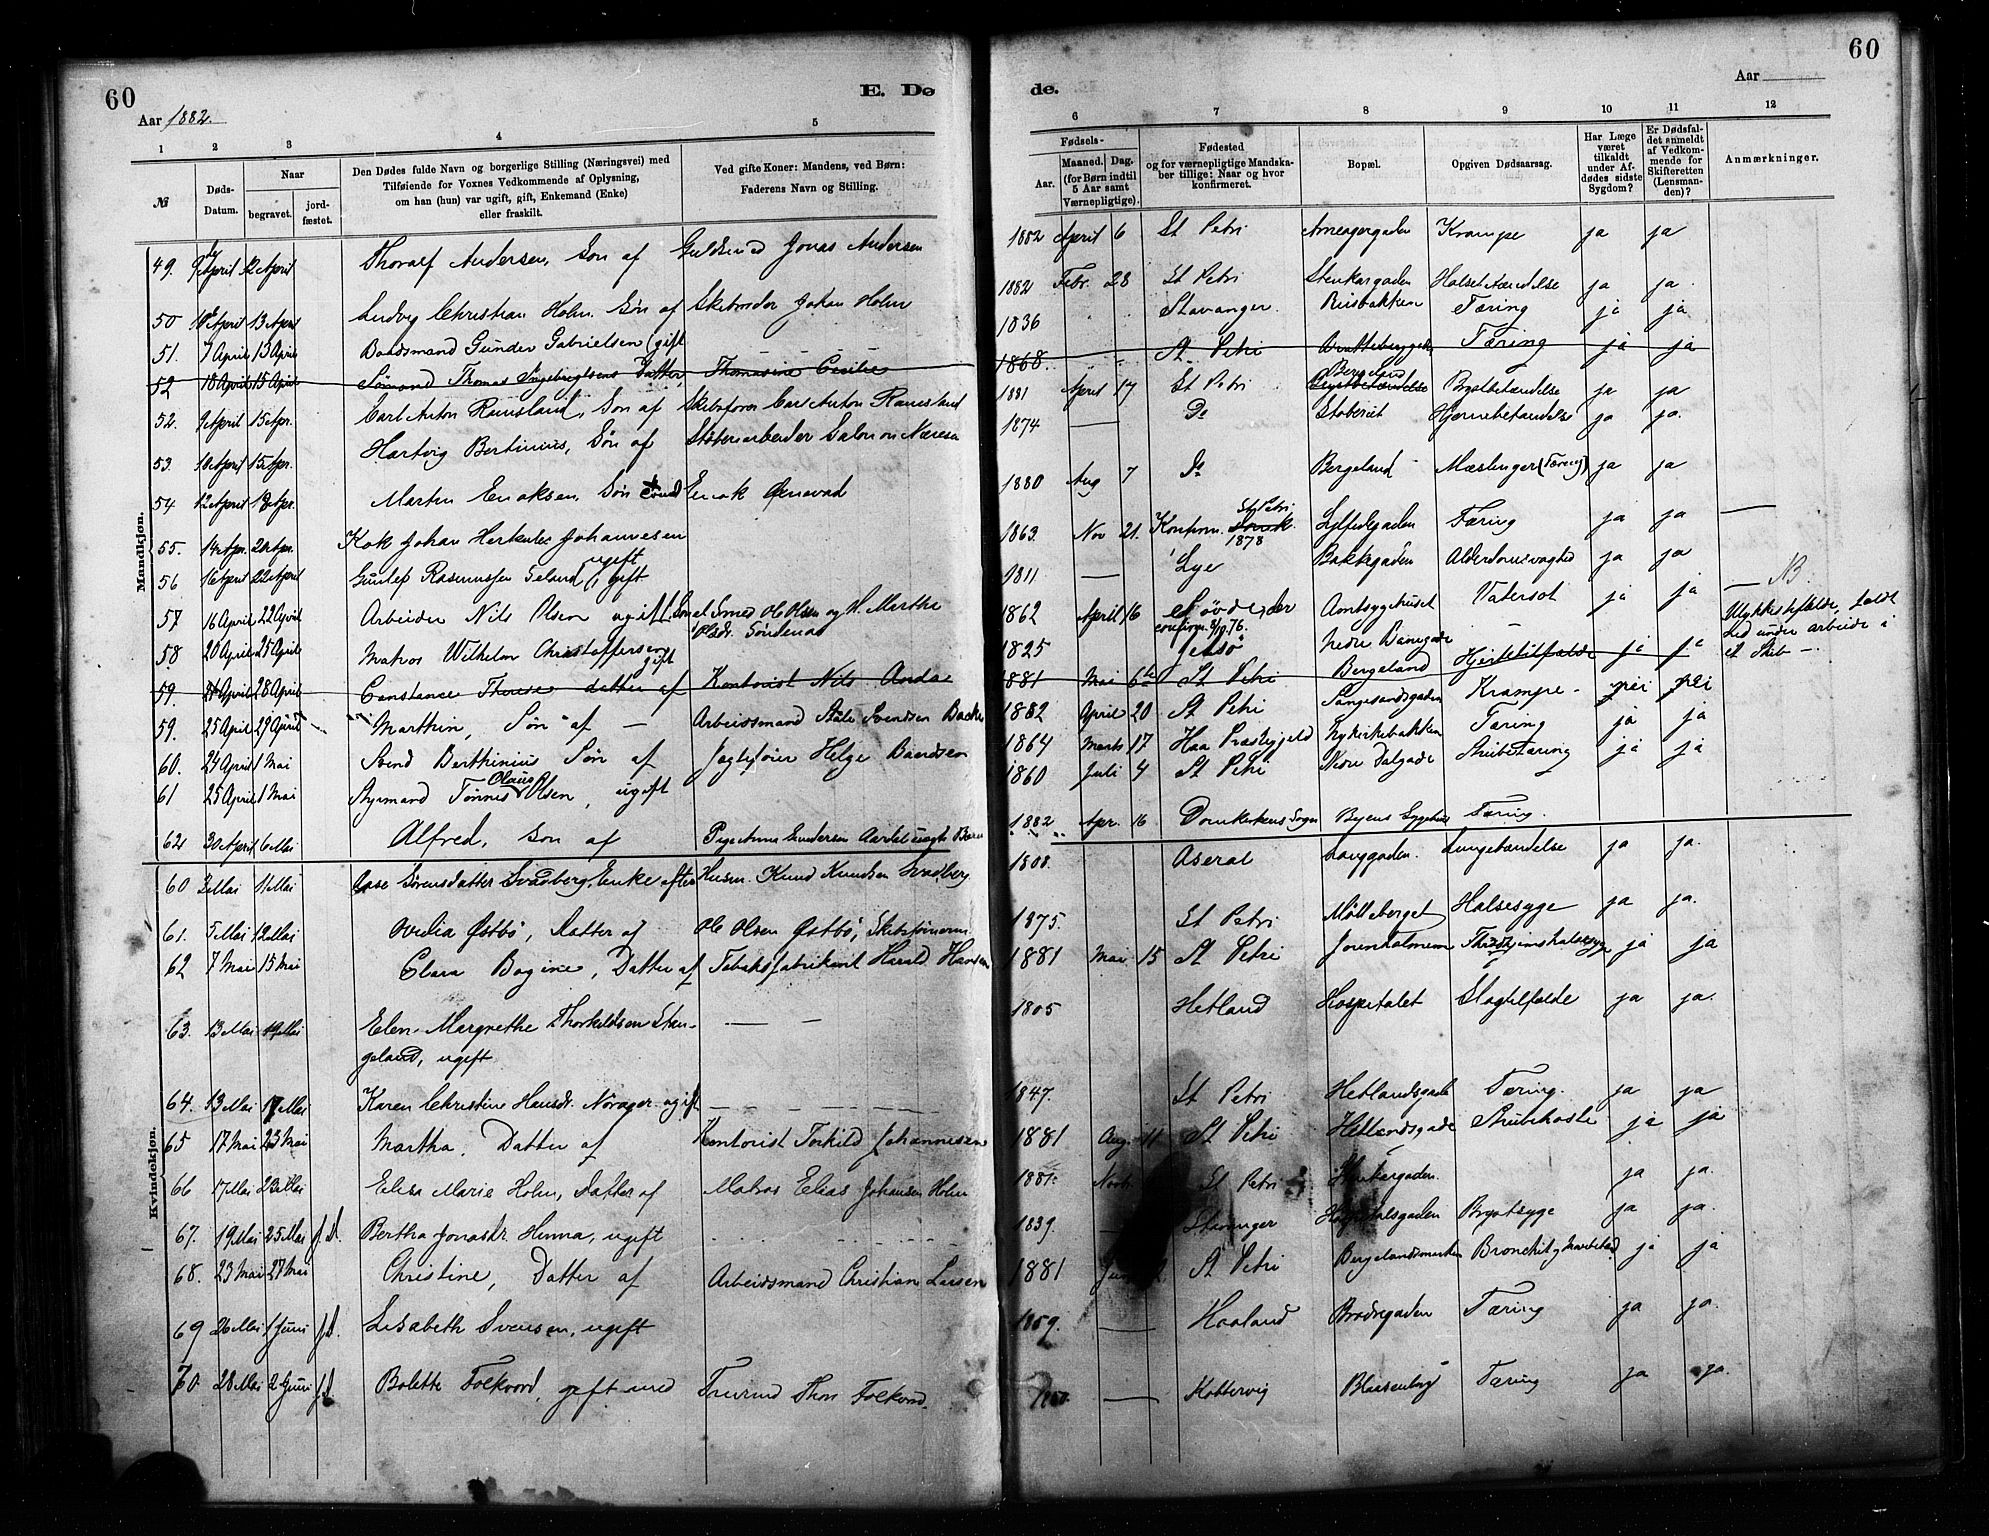 60
E. Dø
de.
60
Aar 1882.
Aar
1 2 3 4 5
6 7 8 9 10 11 12
№
Døds-Datum.
Naar
begravet.
jord-fæstet.
Den Dødes fulde Navn og borgerlige Stilling (Næringsvei) med
Tilføiende for Voxnes Vedkommende af Oplysning,
om han (hun) var ugift, gift, Enkemand (Enke)
eller fraskilt.
Ved gifte Koner: Mandens, ved Børn:
Faderens Navn og Stilling.
Fødsels-
Aar.
Maaned. Dag.
(for Børn indtil
5 Aar samt
Værnepligtige).
Fødested
og for værnepligtige Mandska-
ber tillige: Naar og hvor
konfirmeret.
Bopæl.
Opgiven Dødsaarsag.
Har Læge
været
tilkaldt
under Af-
dødes sidste
Sygdom?
Er Dødsfal-
det anmeldt
af Vedkom-
mende for
Skifteretten
(Lensman-
den)?
Anmærkninger.
Mandkjøn.
49. 9 April 12 April Thoralf Andersen, Søn af Guldsmed Jonas Andersen 1882 April 6 St Petri Krampe ja ja
50 10 April 13 April Ludvig Christian Holm Søn af Skibsreder Johan Holm 1882 Febr. 28 St Petri Stenkargaden Halsbetændelse ja ja
51. 7 April 13 April Baadsmand Gunder Gabrielsen (gift 1836 Stavanger. Tæring ja ja
52 10 April 15 April Sømand Thomas Ingebregtsens Datter, Thomasine Cecilie 1868. St Petri Tæring ja ja
52. 9 April 15 Apr. Carl Anton Ramsland, Søn af Skibsfører Carl Anton Ramsland 1881 April 17 St Petri Bergeland Brystbetændelse Brystbetændelse ja ja
53. 10 April 15 Apr. Hartvig Bertinius, Søn af Støberiarbeider Salomon 1874 — Do Støberiet Hjernebetændelse ja ja.
54 12 April 18 Apr. Martin Enoksen, Søn Enok 1880 Aug 7 Do Bergeland Mæslinger (Tæring) ja ja
55. 14 Apr. 20 Apr. Kok Johan Herkules Johannesen ugift 1863. Nov 21. Konfirm. St Petri 1878 Tæring ja ja —
56 16 April 22 April Gunlef Rasmussen, gift 1811 — Lye Bakkegaden Alderdomssvaghed ja ja
57 16 April 22 April Arbeider Nils Olsen ugift. Søn af Smed Ole Olsen og H. Martha Olsdr. Søndenaa 1862 April 16 confirm. 8/10 76. Amtssygehuset Vatersot ja ja — NB.
58 20 April 25 April Matros Wilhelm Christoffersen gift 1825 Nedre ja ja Ulykkestilfælde, faldt ned under arbeide i et Skib —
59. 28 April Constance Therese datter af Kontorist Nils Andal 1881 Mai 6te St Petri Bergeland Hjertetilfælde
59. 25 April 29 April Marthin, Søn af — Arbeidsmand Ståle Svendsen Bakke 1882 April 20 St Petri Krampe nei nei
60. 24 April 1 Mai Svend Berthinius Søn af Jagtefører Helge Baardsen 1864 Marts 17 Haa Præstegjeld Nykirkebakken Tæring ja ja
61 25 April 1 Mai Styrmand Tønnes Olaus Olsen, ugift 1860 Juli 4 St Petri Nedre Dalgade Strubetæring ja ja
62 30 April 6 Mai Alfred, søn af Pige Anna Gundersen 1882 Apr. 16 Domkirkens Sogn Byens Sygehus Tæring.
Kvindekjøn.
60 3 Mai 11 Mai Aase Sørensdatter Svadberg, Enke efter Husm. Knud Knudsen Svadberg 1808. Aseral Langgaden. Lungebetændelse ja ja.
61. 5 Mai 12 Mai Ovedia Østbø, Datter af Ole Olsen Østbø, Skibstømmerm 1875. St Petri Møllebergel Halsesyge ja ja.
62 7 Mai 15 Mai Clara Bogine, Datter af Tobaksfabrikant Harald Hansen 1881 Mai 15 St Petri Jorenholmen ja ja
63. 13 Mai 19 Mai Elen Margrethe Thorkildsen Stan-
geland, ugift — — 1805 Hetland Hospitalet Slagtilfælde ja ja.
64. 13 Mai 17 Mai Karen Christine Hansdr. ugift 1847. St Petri Hetlandsgade Tæring. ja ja
65 17 Mai 23 Mai Martha, Datter af Kontorist Torkild Johannesen 1881 Aug. 11 St Petri Hetlandsgade Strubehoste ja ja
66 17 Mai 23 Mai Elisa Marie Holm, Datter af Matros Elias Johansen Holm 1881. Novb. St Petri Stenkargaden. ja ja.
67. 19 Mai 25 Mai J.D. Bertha Jonasdr. Hinna, ugift 1839 — Stavanger Hospitalsgaden Brystsyge ja ja
68. 23 Mai 27 Mai Christine, Datter af Arbeidsmand Christian Larsen 1881 St Petri Bergelandsmarken ja ja
69 26 Mai 1 Juni J.D. Lisabeth Svensen, ugift 1859. — Haaland Brødregaden Tæring ja ja.
70. 28 Mai 2 Juni J.D. Bolette Folkvord, gift med Folkvord. — Kobbervig Blaasenborg Tæring ja ja.